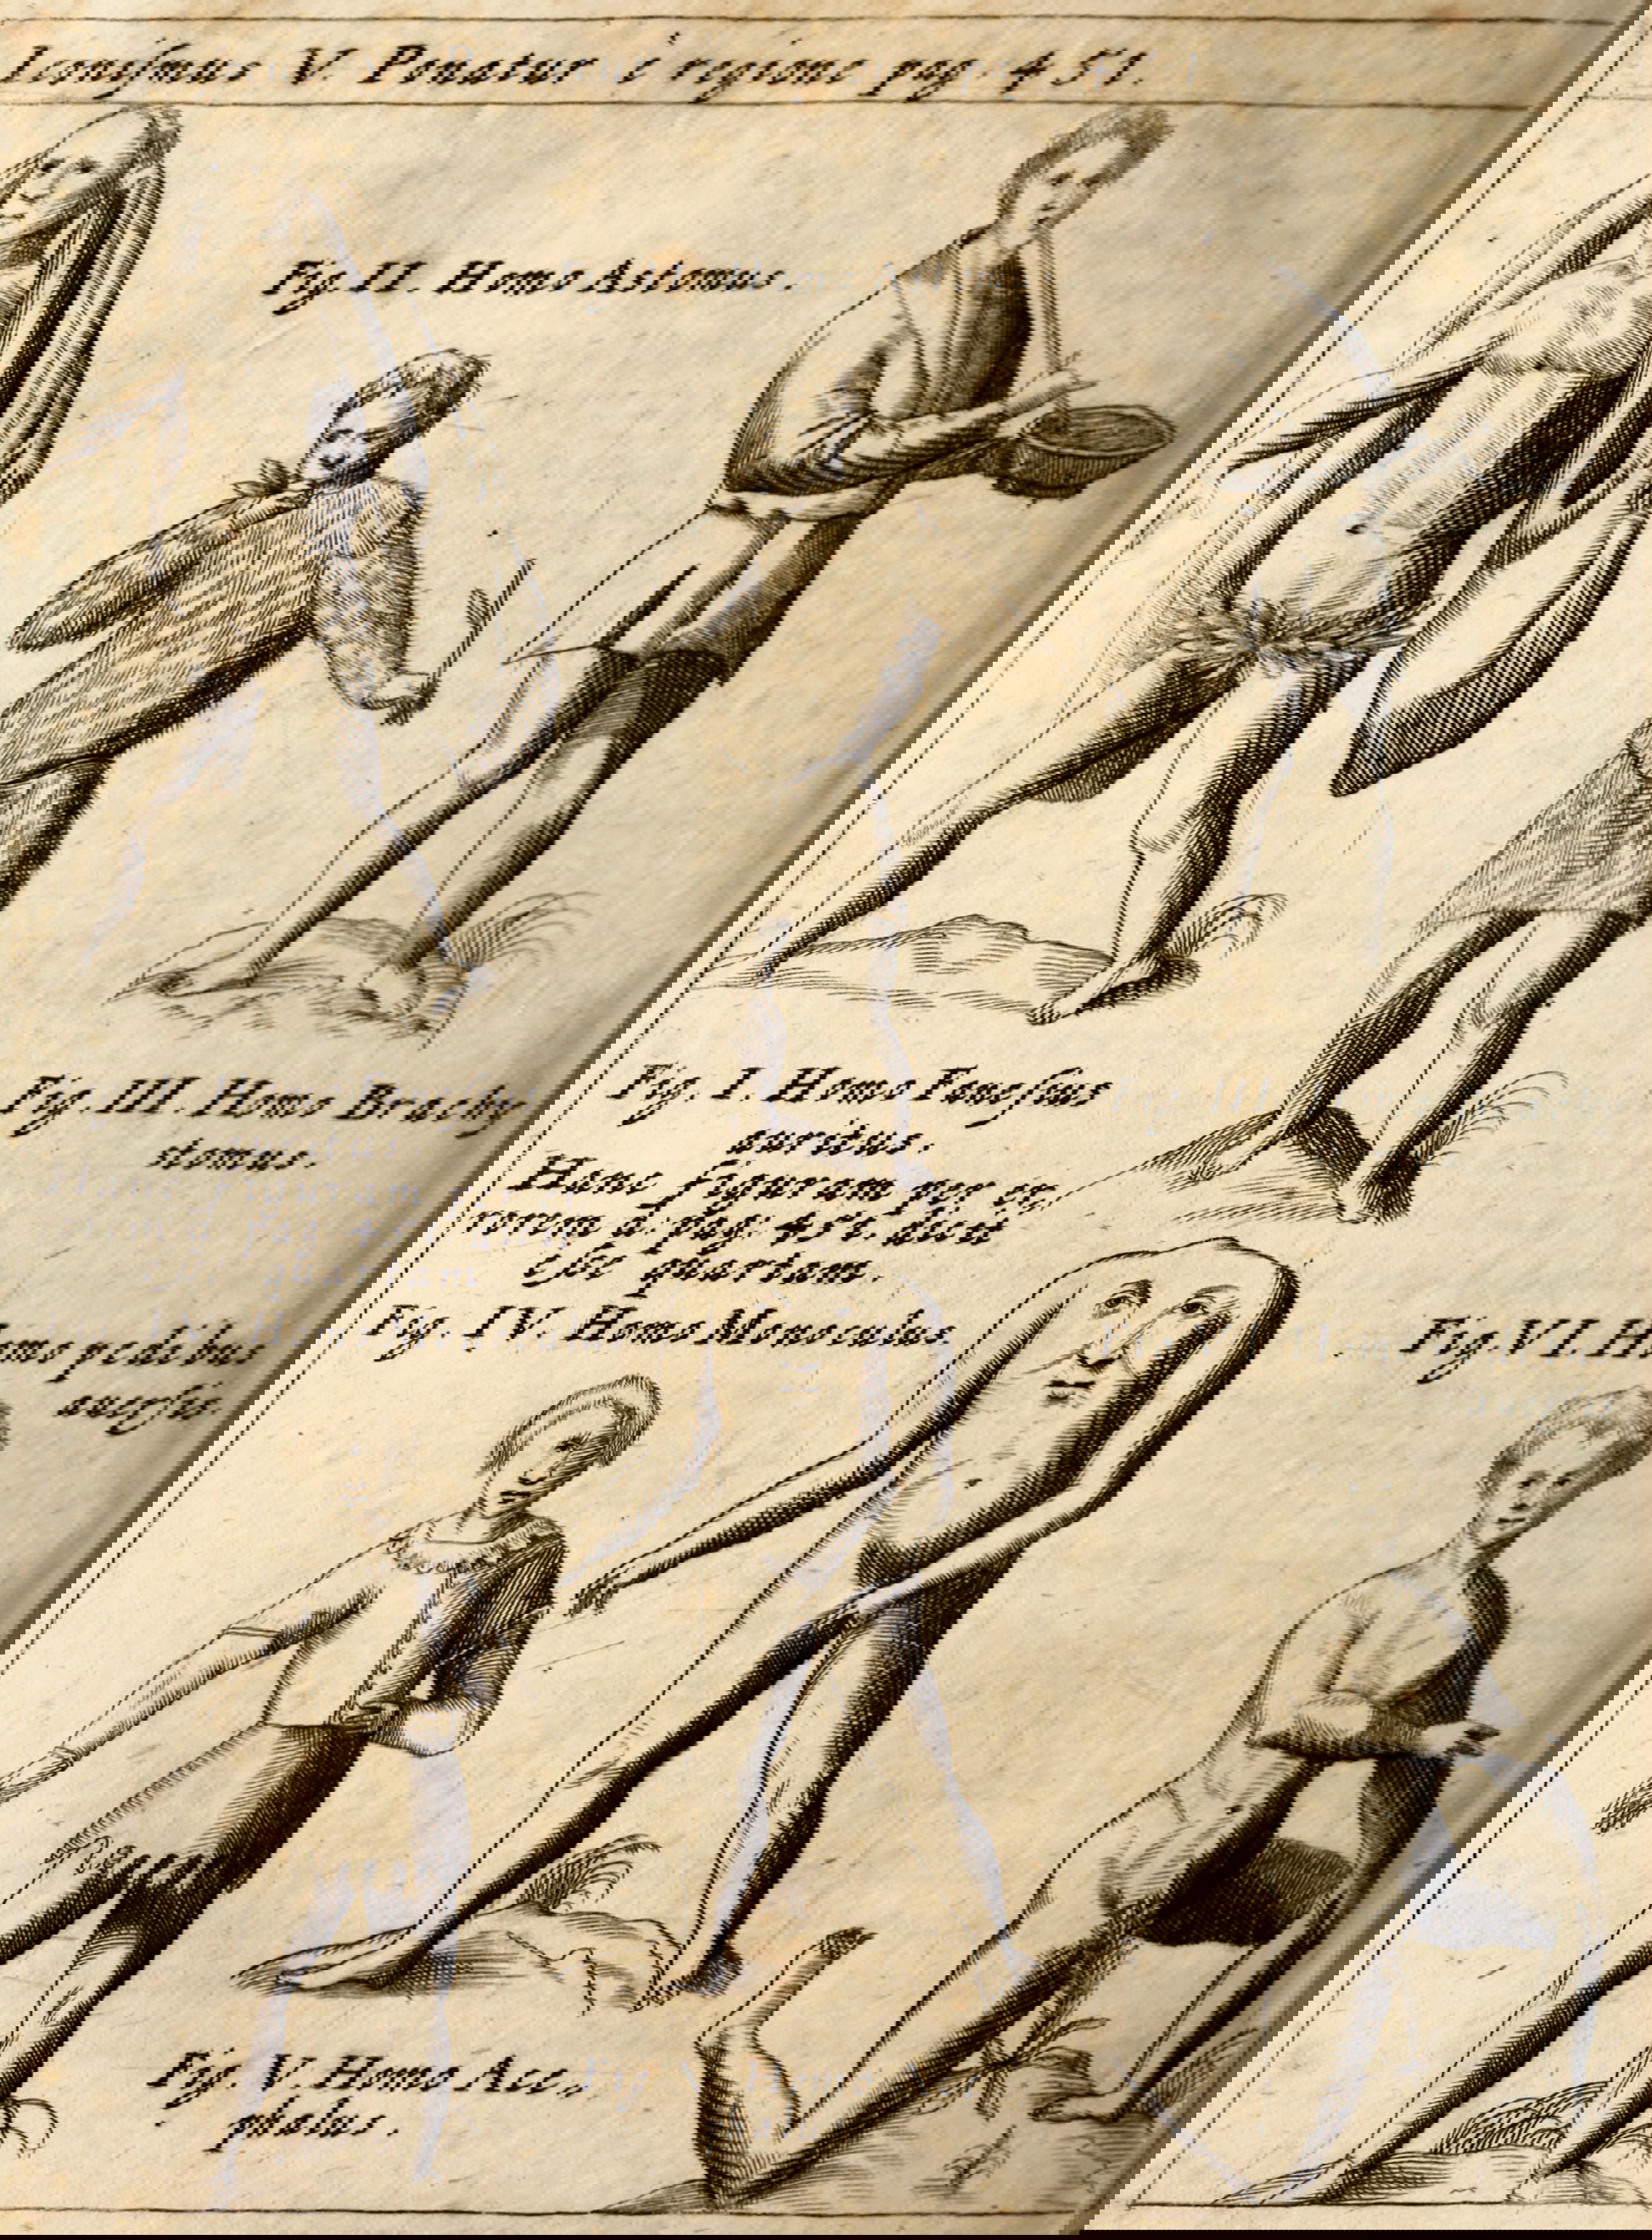 Iconiſmus V. Ponatur è regione pag. 451.
Fig. II. Homo Astomus.
Fig. III. Homo Brachy
stomus.
Fig. I. Homo Faneſius
auritus.
Hanc figuram per er,
rorem à pag: dicit
eſse quartam.
Fig. IV. Homo Monoculus.
pedibus
auerſis.
Fig. VI. H
Fig. V. Homo Ace,
phalus.